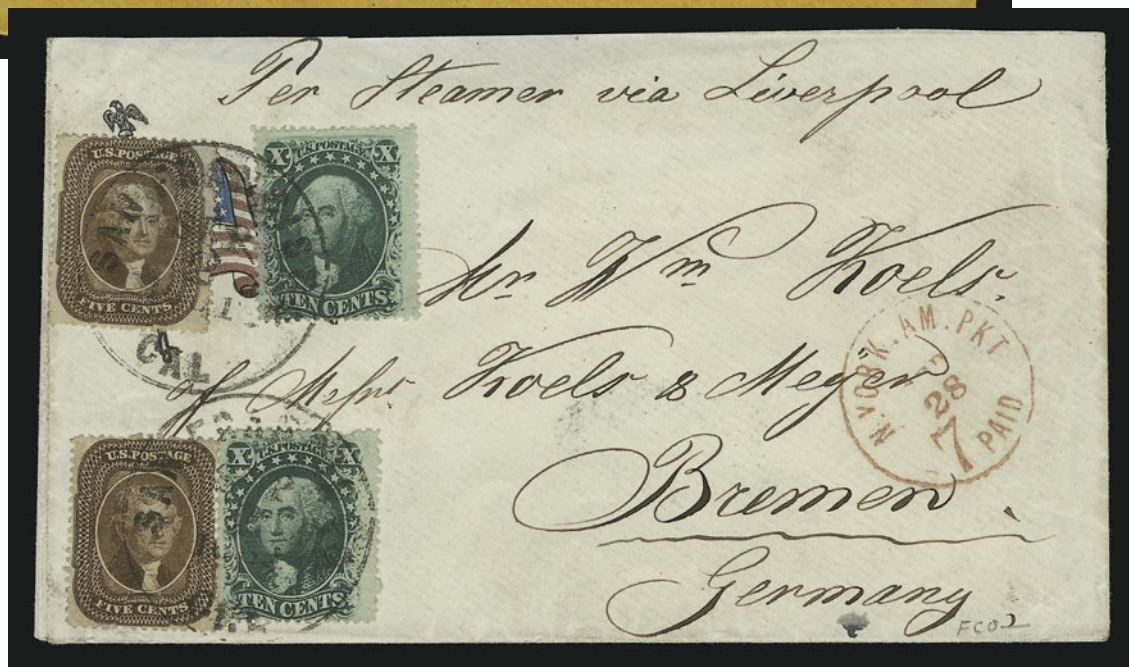 Per Steamer via Liverpool
U.S. POSTAGE
FIVE CENTS
X U.S. POSTAGE X
TEN CENTS
SAN
CAL
Mr. Wm Koels.
of Messrs Koels & Meyer
Bremen.
Germany
N. YORK. AM. PKT
28
7
PAID
U.S. POSTAGE
FIVE CENTS
X U.S. POSTAGE X
TEN CENTS
FC02